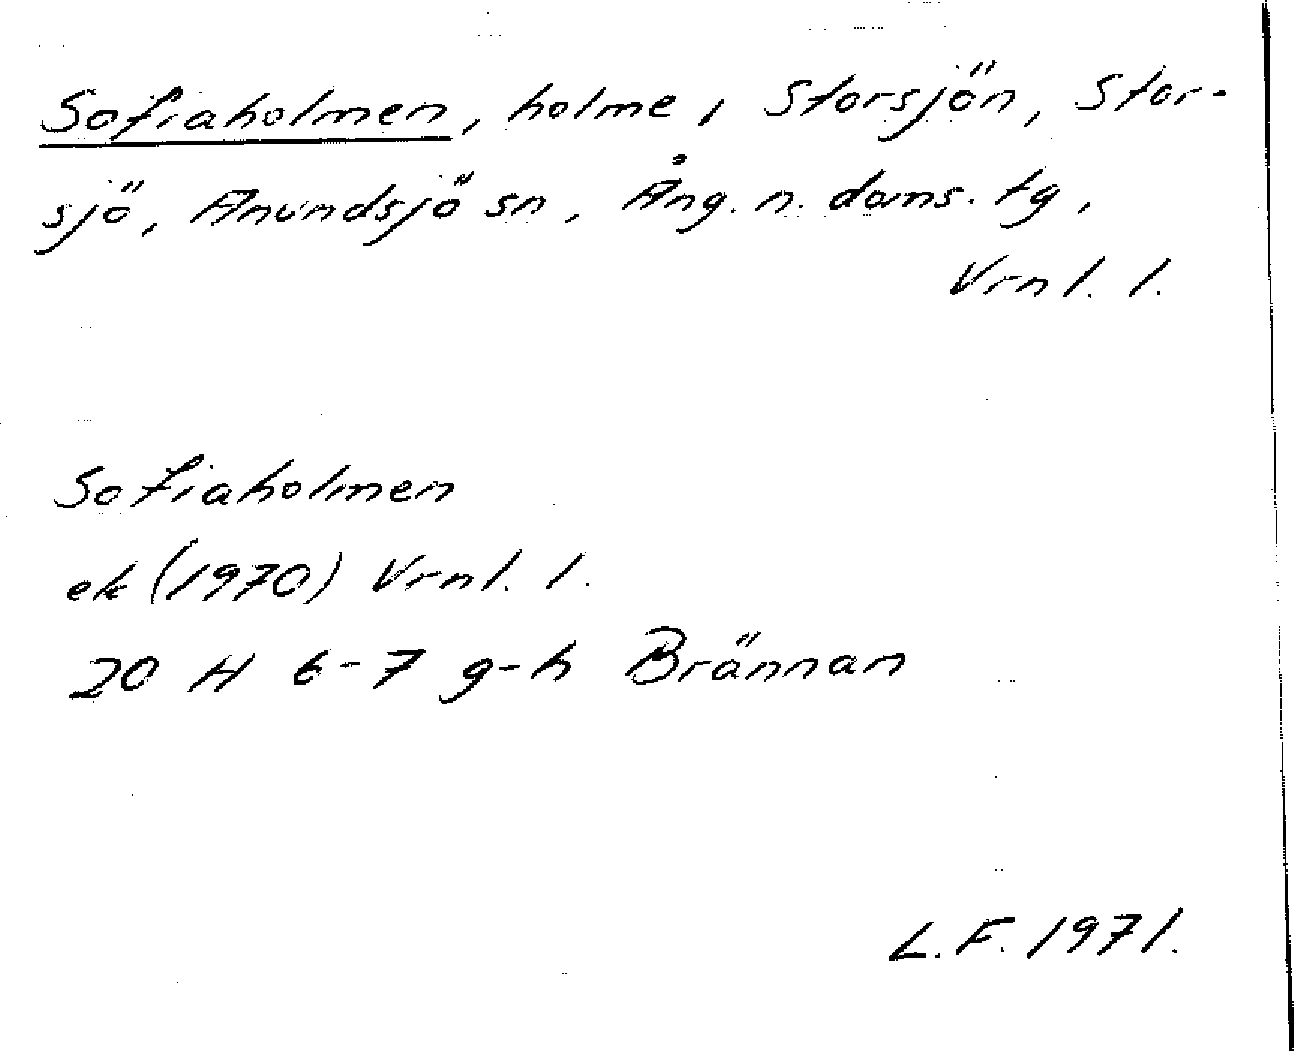 Sofiaholmen, holme i Storsjön, Stor-
sjö, Anundsjö sn, Ång. n. doms. tg,
Vrnl. l.
Sofiaholmen
ek (1970) Vrnl. l.
20 H 6-7 g-h Brännan
L.F. 1971.